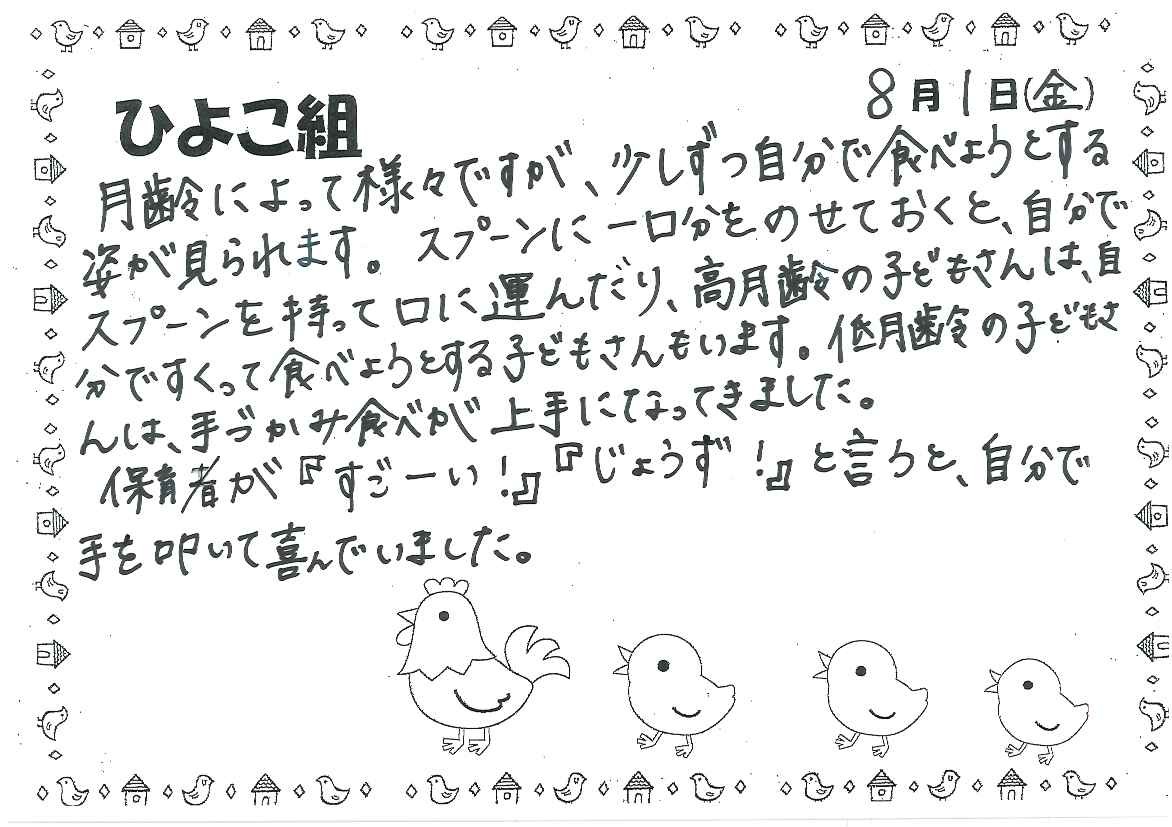 8月1日(金)
ひよこ組
月齢によって様々ですが、少しずつ自分で食べようとする
姿が見られます。スプーンに一口分をのせておくと、自分で
スプーンを持って口に運んだり、高月齢の子どもさんは、自
分ですくって食べようとする子どもさんもいます。低月齢の子どもさ
んは、手づかみ食べが上手になってきました。
保育者が『すごーい!』『じょうず!』と言うと、自分で
手を叩いて喜んでいました。